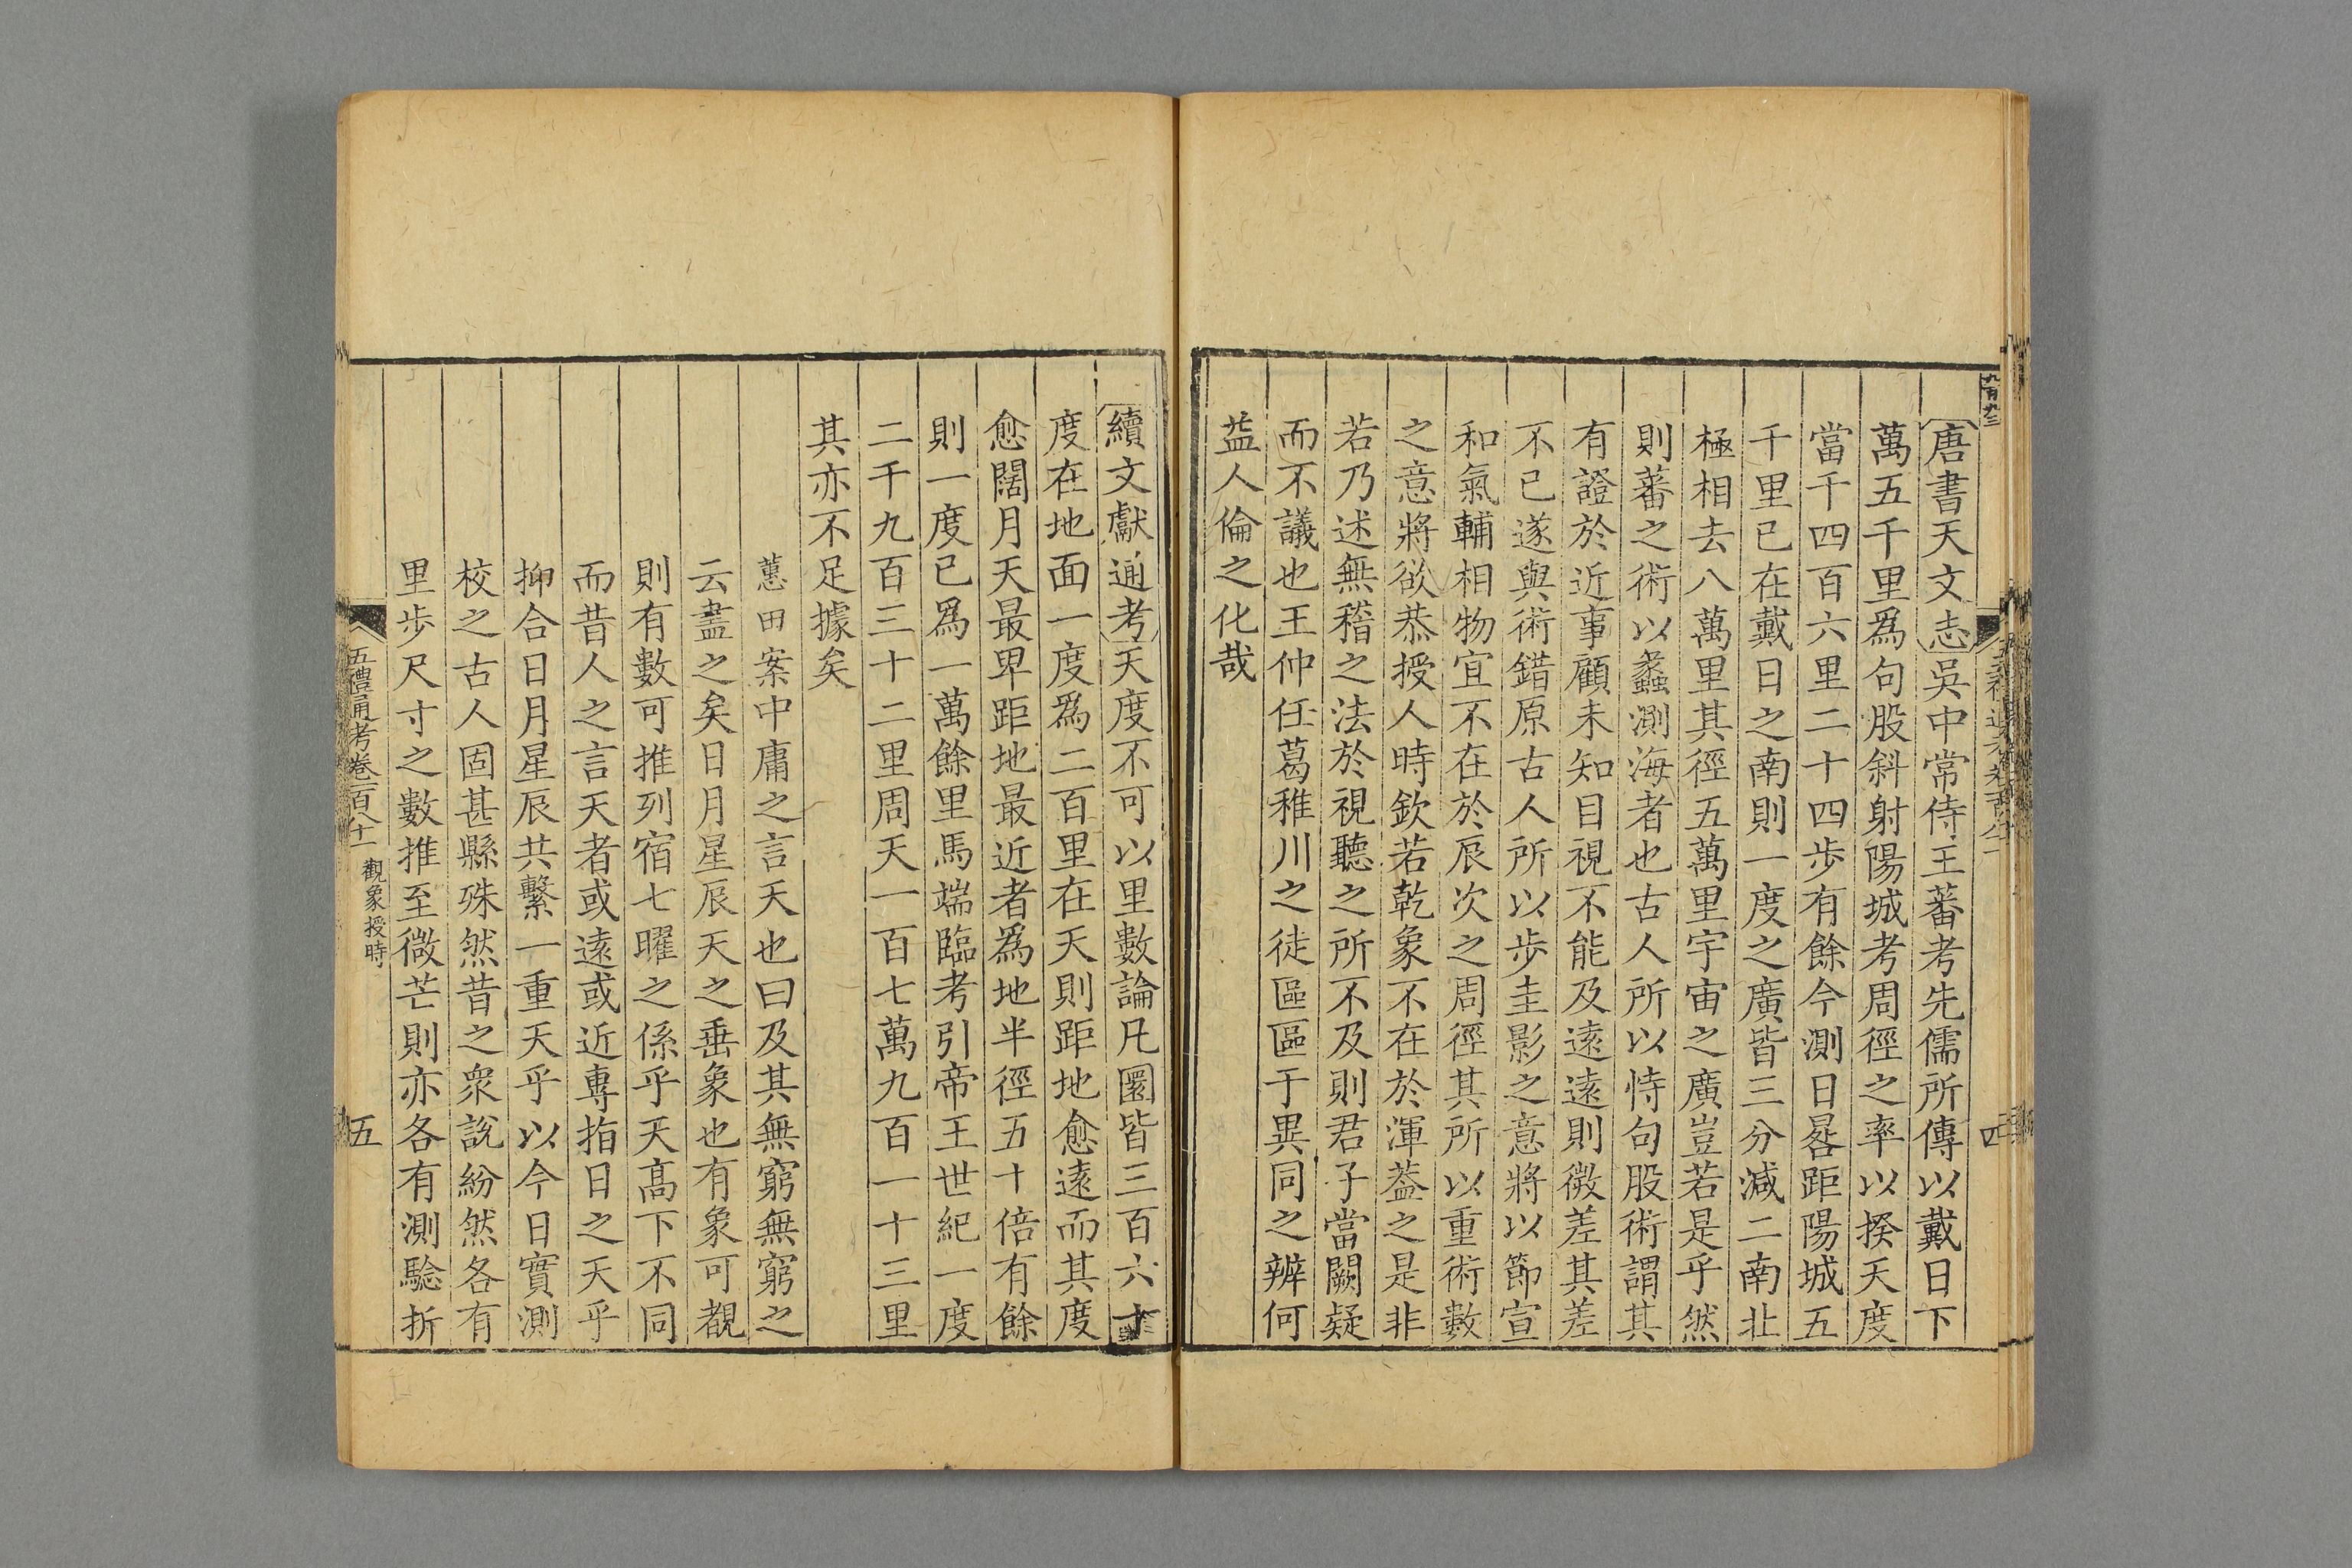 唐書天文志吳中常侍王蕃考先儒所傳以戴日下
萬五千里爲句股斜射陽城考周徑之率以揆天度
當千四百六里二十四步有餘今測日晷距陽城五
千里已在戴日之南則一度之廣皆三分減二南北
極相去八萬里其徑五萬里宇宙之廣豈若是乎然
則蕃之術以蠡測海者也古人所以恃句股術謂其
有證於近事顧未知目視不能及遠遠則微差其差
不已遂與術錯原古人所以步圭影之意將以節宣
和氣輔相物宜不在於辰次之周徑其所以重術數
之意將欲恭授人時欽若乾象不在於渾葢之是非
若乃述無稽之法於視聽之所不及則君子當闕疑
而不議也王仲任葛稚川之徒區區于異同之辨何
益人倫之化哉
四
續文獻通考天度不可以里數論凡圜皆三百六十
度在地面一度爲二百里在天則距地愈遠而其度
愈闊月天最卑距地最近者爲地半徑五十倍有餘
則一度已爲一萬餘里馬端臨考引帝王世紀一度
二千九百三十二里周天一百七萬九百一十三里
其亦不足據矣
蕙田案中庸之言天也曰及其無窮無窮之
云盡之矣日月星辰天之垂象也有象可覩
則有數可推列宿七曜之係乎天高下不同
而昔人之言天者或遠或近專指日之天乎
抑合日月星辰共繫一重天乎以今日實測
校之古人固甚縣殊然昔之衆說紛然各有
里步尺寸之數推至微芒則亦各有測驗折
五禮通考卷一百八十一 觀象授時
五